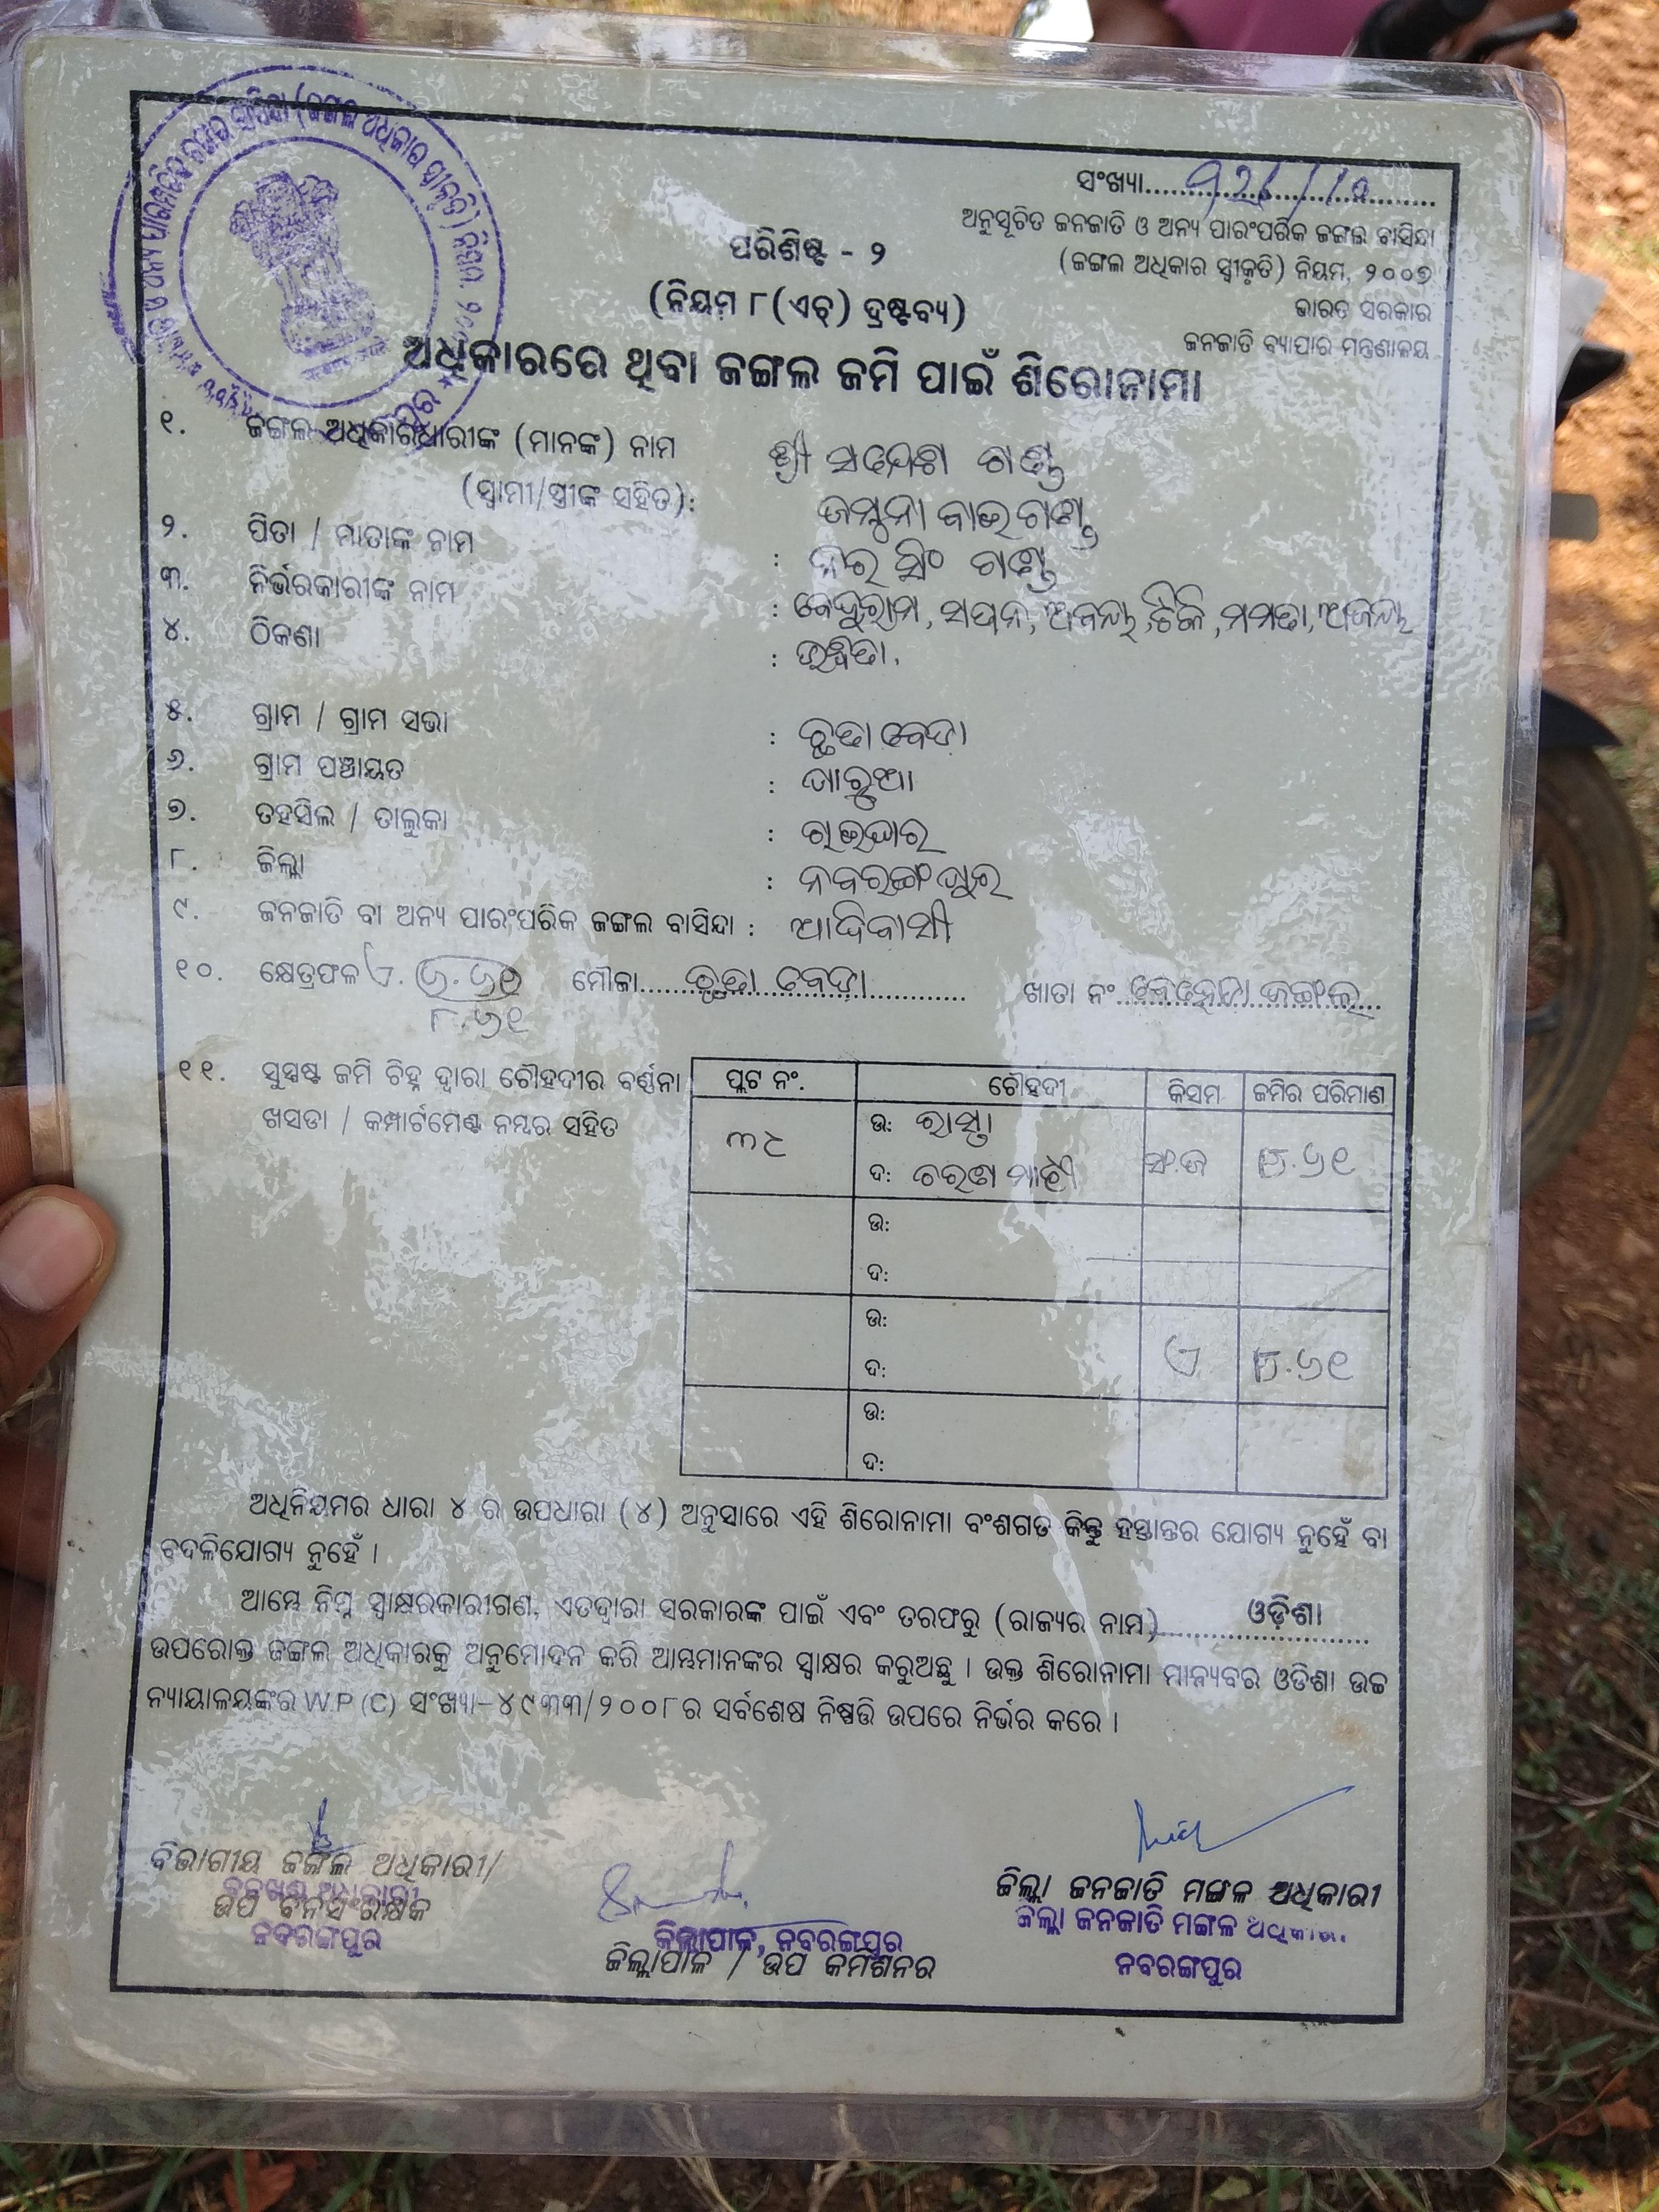 ସଂଖ୍ୟା
ଅନୁସୂଚିତ ଜନଜାତି ଓ ଅନ୍ୟ ପାରଂପରିକ ଜଙ୍ଗଲ ବାସିନ୍ଦା
(ଜଙ୍ଗଲ ଅଧିକାର ସ୍ୱୀକୃତି) ନିୟମ, ୨୦୦୭
ଭାରତ ସରକାର
ଜନଜାତି ବ୍ୟାପାର ମନ୍ତ୍ରଣାଳୟ
ପରିଶିଷ୍ଟ - ୨
(ନିୟମ ୮(ଏଚ୍) ଦ୍ରଷ୍ଟବ୍ୟ)
ଅଧିକାରରେ ଥିବା ଜଙ୍ଗଲ ଜମି ପାଇଁ ଶିରୋନାମା
୧. ଜଙ୍ଗଲ ଅଧିକାରଧାରୀଙ୍କ (ମାନଙ୍କ) ନାମ ଶ୍ରୀ ଗଣ୍ଡ
(ସ୍ୱାମୀ/ସ୍ତ୍ରୀଙ୍କ ସହିତ): ଜମୁନା ବାଇ ଗଣ୍ଡ
୨. ପିତା / ମାତାଙ୍କ ନାମ : ସିଂ ଗଣ୍ଡ
୩. ନିର୍ଭରକାରୀଙ୍କ ନାମ : ମମତା,
୪. ଠିକଣା :
୫. ଗ୍ରାମ / ଗ୍ରାମ ସଭା : ବେଡା
୬. ଗ୍ରାମ ପଞ୍ଚାୟତ :
୭. ତହସିଲ / ତାଲୁକା : ରାଇଘର
୮. ଜିଲ୍ଲା : ନବରଙ୍ଗପୁର
୯. ଜନଜାତି ବା ଅନ୍ୟ ପାରଂପରିକ ଜଙ୍ଗଲ ବାସିନ୍ଦା : ଆଦିବାସୀ
୧୦. କ୍ଷେତ୍ରଫଳ ଏ. ୬.୬୧ ମୌଜା ବେଡା ଖାତା ନଂ ଜଙ୍ଗଲ
୮.୬୧
୧୧. ସୁସ୍ପଷ୍ଟ ଜମି ଚିହ୍ନ ଦ୍ୱାରା ଚୌହଦୀର ବର୍ଣ୍ଣନା
ଖସଡା / କମ୍ପାର୍ଟମେଣ୍ଟ ନମ୍ବର ସହିତ
ପ୍ଲଟ ନଂ. ଚୌହଦୀ କିସମ ଜମିର ପରିମାଣ
୩୪ ଉ: ରାସ୍ତା
ଦ: ଚରଣ ମାଝୀ ୮.୬୧
ଉ:
ଦ:
ଉ:
ଦ: ଏ ୮.୬୧
ଉ:
ଦ:
ଅଧିନିୟମର ଧାରା ୪ ର ଉପଧାରା (୪) ଅନୁସାରେ ଏହି ଶିରୋନାମା ବଂଶଗତ କିନ୍ତୁ ହସ୍ତାନ୍ତର ଯୋଗ୍ୟ ନୁହେଁ ବା
ବଦଳିଯୋଗ୍ୟ ନୁହେଁ ।
ଆମ୍ଭେ ନିମ୍ନ ସ୍ୱାକ୍ଷରକାରୀଗଣ, ଏତଦ୍ୱାରା ସରକାରଙ୍କ ପାଇଁ ଏବଂ ତରଫରୁ (ରାଜ୍ୟର ନାମ) ଓଡ଼ିଶା
ଉପରୋକ୍ତ ଜଙ୍ଗଲ ଅଧିକାରକୁ ଅନୁମୋଦନ କରି ଆମ୍ଭମାନଙ୍କର ସ୍ୱାକ୍ଷର କରୁଅଛୁ । ଉକ୍ତ ଶିରୋନାମା ମାନ୍ୟବର ଓଡିଶା ଉଚ୍ଚ
ନ୍ୟାୟାଳୟଙ୍କର W.P (C) ସଂଖ୍ୟା-୪୯୩୩/୨୦୦୮ର ସର୍ବଶେଷ ନିଷ୍ପତ୍ତି ଉପରେ ନିର୍ଭର କରେ ।
ବିଭାଗୀୟ ଜଙ୍ଗଲ ଅଧିକାରୀ/
ବନଖଣ୍ଡ ଅଧିକାରୀ
ଉପ ବନସଂରକ୍ଷକ
ନବରଙ୍ଗପୁର
ଜିଲ୍ଲାପାଳ, ନବରଙ୍ଗପୁର
ଜିଲ୍ଲାପାଳ / ଉପ କମିଶନର
ଜିଲ୍ଲା ଜନଜାତି ମଙ୍ଗଳ ଅଧିକାରୀ
ଜିଲ୍ଲା ଜନଜାତି ମଙ୍ଗଳ ଅଧିକାରୀ
ନବରଙ୍ଗପୁର